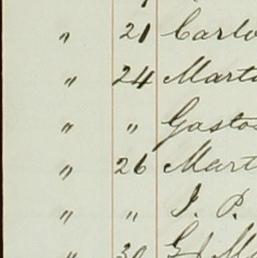 " 21 Carlo
" 24 Marti
" " Gasto
" 26 Mart
" " J. P.
" 30 G J M